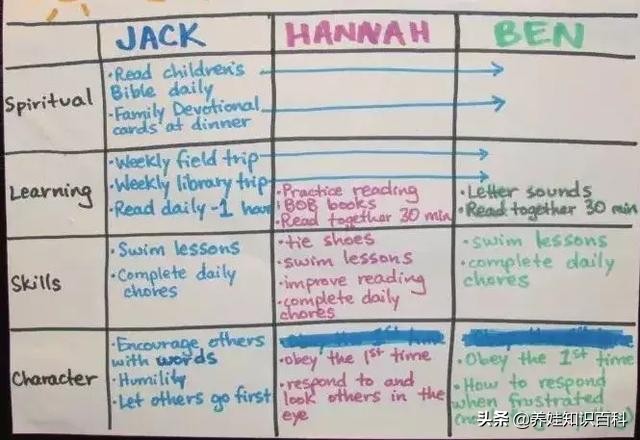 JACK HANNAH BEN
Spiritual
•Read children's
Bible daily
•Family Devotional
cards at dinner
Learning
•Weekly field trip
•Weekly library trip
•Read daily -1 hour
•Practice reading
BOB books
•Read together 30 min
•Letter sounds
•Read together 30 min
Skills
•Swim lessons
•Complete daily
chores
•tie shoes
•swim lessons
•improve reading
•complete daily
chores
•swim lessons
•complete daily
chores
Character
•Encourage others
with words
•Humility
•Let others go first
•obey the 1st time
•respond to and
look others in the
eye
•Obey the 1st time
•How to respond
when frustrated
头条 @养娃知识百科